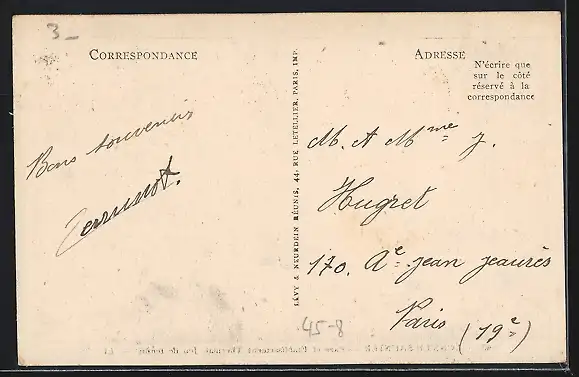 3-
CORRESPONDANCE
ADRESSE
N'écrire que
sur le côté
réservé à la
correspondance
Bons souvenirs
LÉVY & NEURDEIN RÉUNIS, 44, RUE LETELLIER, PARIS, IMP.
M. et Mme J.
Hugret
170. Ae Jean Jeaurès
Paris (19e)
45-8